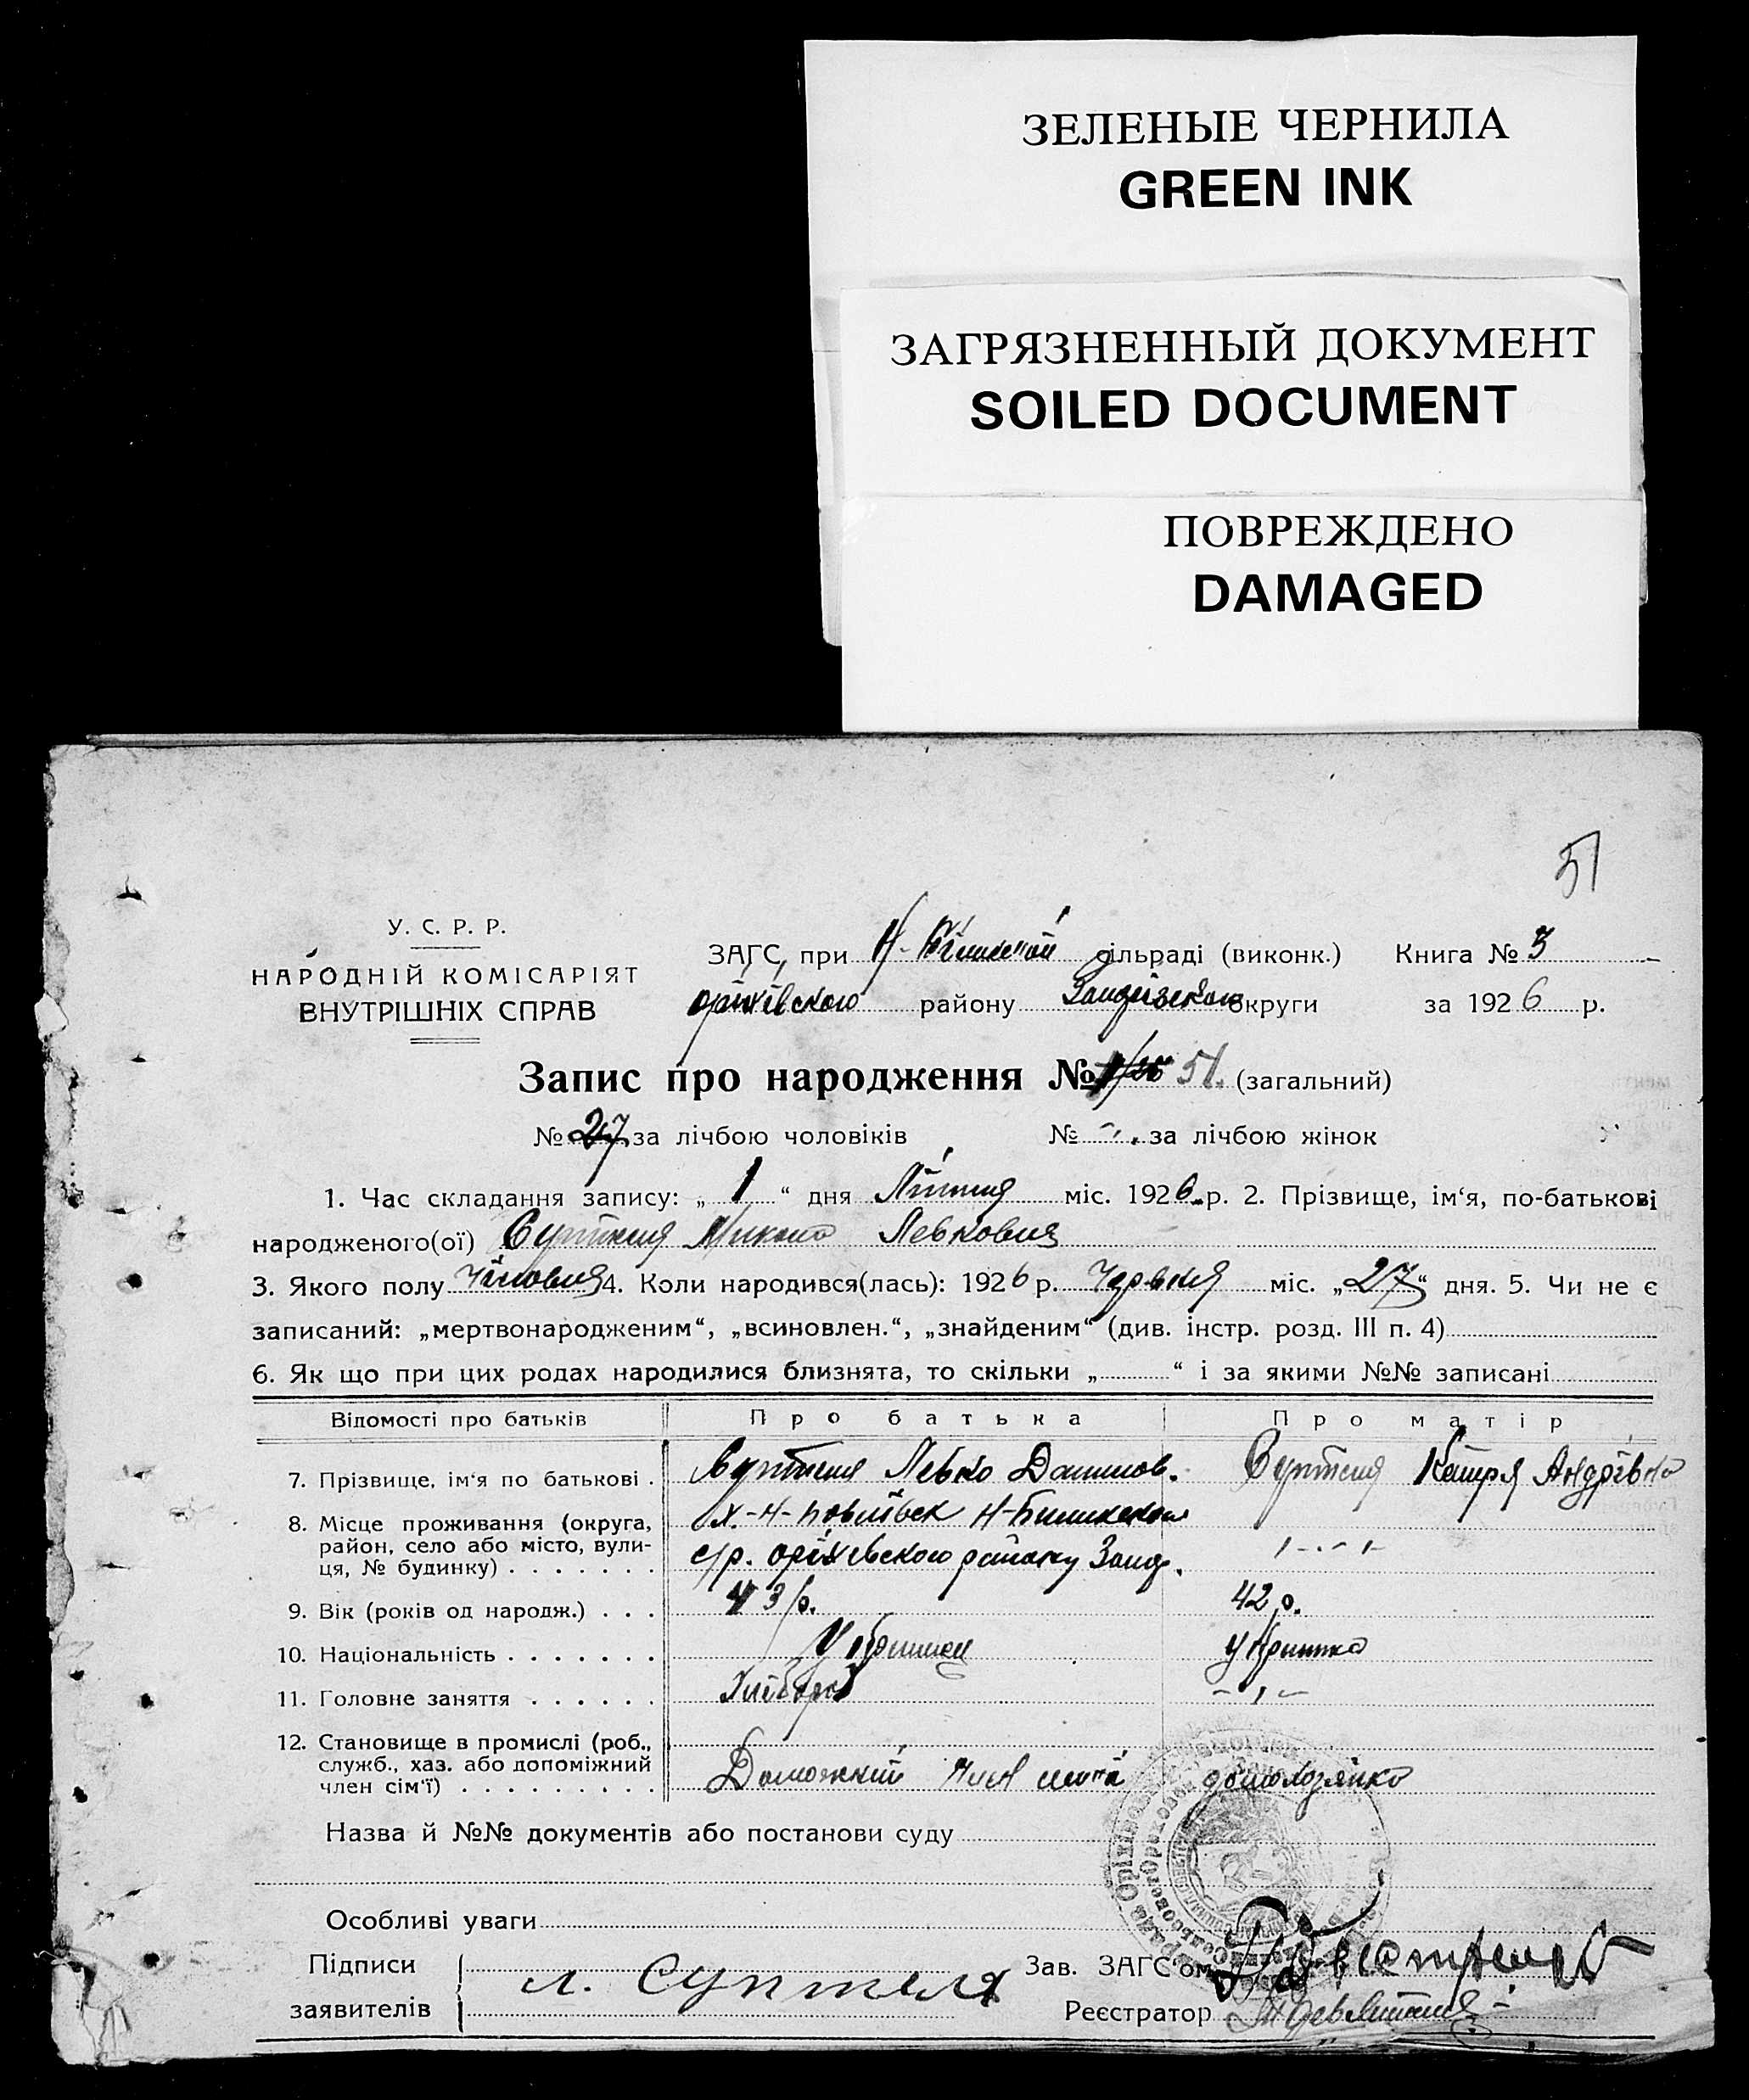 ЗЕЛЕНЫЕ ЧЕРНИЛА
GREEN INK
ЗАГРЯЗНЕННЫЙ ДОКУМЕНТ
SOILED DOCUMENT
ПОВРЕЖДЕНО
DAMAGED
51
У. С. Р. Р.
НАРОДНІЙ КОМІСАРІЯТ
ВНУТРІШНІХ СПРАВ
ЗАГС, при сільраді (виконк.) Книга № 3
оріхівського району округи за 1926 р.
Запис про народження № 51. (загальний)
№ 27 за лічбою чоловіків № за лічбою жінок
1. Час складання запису: „ 1 “ дня Липня міс. 1926 р. 2. Прізвище, ім‘я, по-батькові
народженого(ої) Суптеля Микола Левкович
3. Якого полу 4. Коли народився(лась): 1926 р. Червня міс. „27“ дня. 5. Чи не є
записаний: „мертвонародженим“, „всиновлен.“, „знайденим“ (див. інстр. розд. III п. 4)
6. Як що при цих родах народилися близнята, то скільки „ “ і за якими №№ записані
Відомості про батьків Про батька Про матір
7. Прізвище, ім‘я по батькові . Суптеля Левко Данилов. Суптеля Катря Андріівна
8. Місце проживання (округа, район, село або місто, вулиця, № будинку) . . . . . . .
с/р. оріхівського району Запор.
9. Вік (років од народж.) . . . 43 р. 42 р.
10. Національність . . . . . . . Українец Українка
11. Головне заняття . . . . . . Хлібороб - " -
12. Становище в промислі (роб., служб., хаз. або допоміжний член сім‘ї) . . . . . . . . . домохозяйка
Назва й №№ документів або постанови суду
Особливі уваги
Підписи
заявителів
Л. Суптеля
Зав. ЗАГС‘ом
Реєстратор